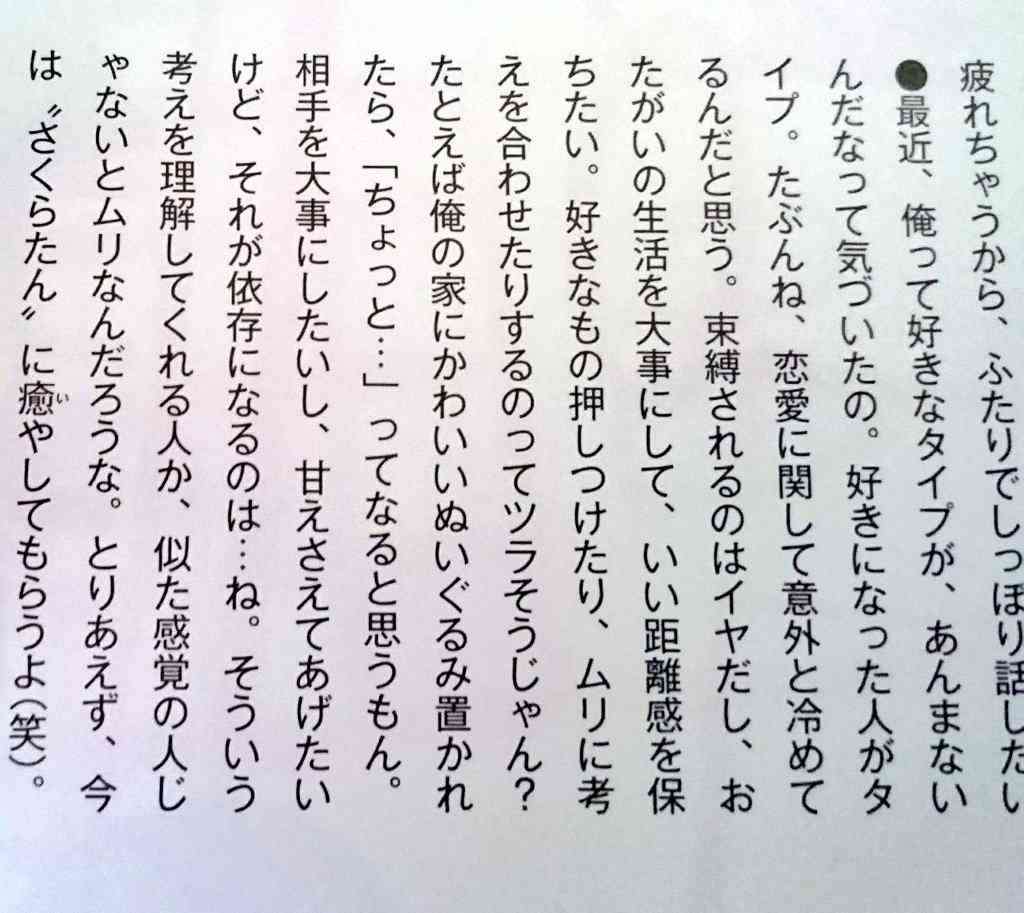 疲れちゃうから、ふたりでしっぽり話したい
●最近、俺って好きなタイプが、あんまない
んだなって気づいたの。好きになった人がタ
イプ。たぶんね、恋愛に関して意外と冷めて
るんだと思う。束縛されるのはイヤだし、お
たがいの生活を大事にして、いい距離感を保
ちたい。好きなもの押しつけたり、ムリに考
えを合わせたりするのってツラそうじゃん？
たとえば俺の家にかわいいぬいぐるみ置かれ
たら、「ちょっと…」ってなると思うもん。
相手を大事にしたいし、甘えさえてあげたい
けど、それが依存になるのは…ね。そういう
考えを理解してくれる人か、似た感覚の人じ
ゃないとムリなんだろうな。とりあえず、今
は〝さくらたん〟に癒やしてもらうよ（笑）。